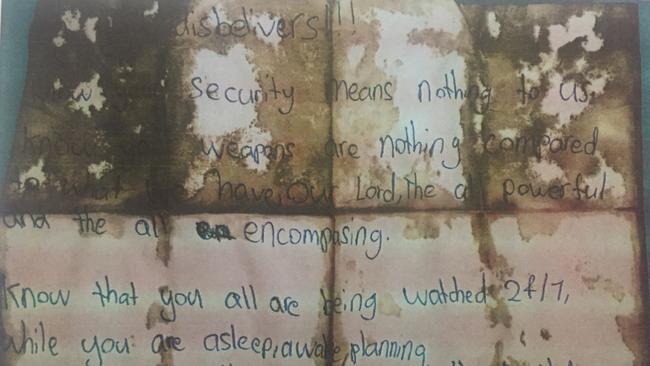 disbelivers!!!
security means nothing to us,
know weapons are nothing compared
what we have, our Lord, the all powerful
and the all encompasing.
Know that you all are being watched 24/7,
while you are asleep, awake, planning